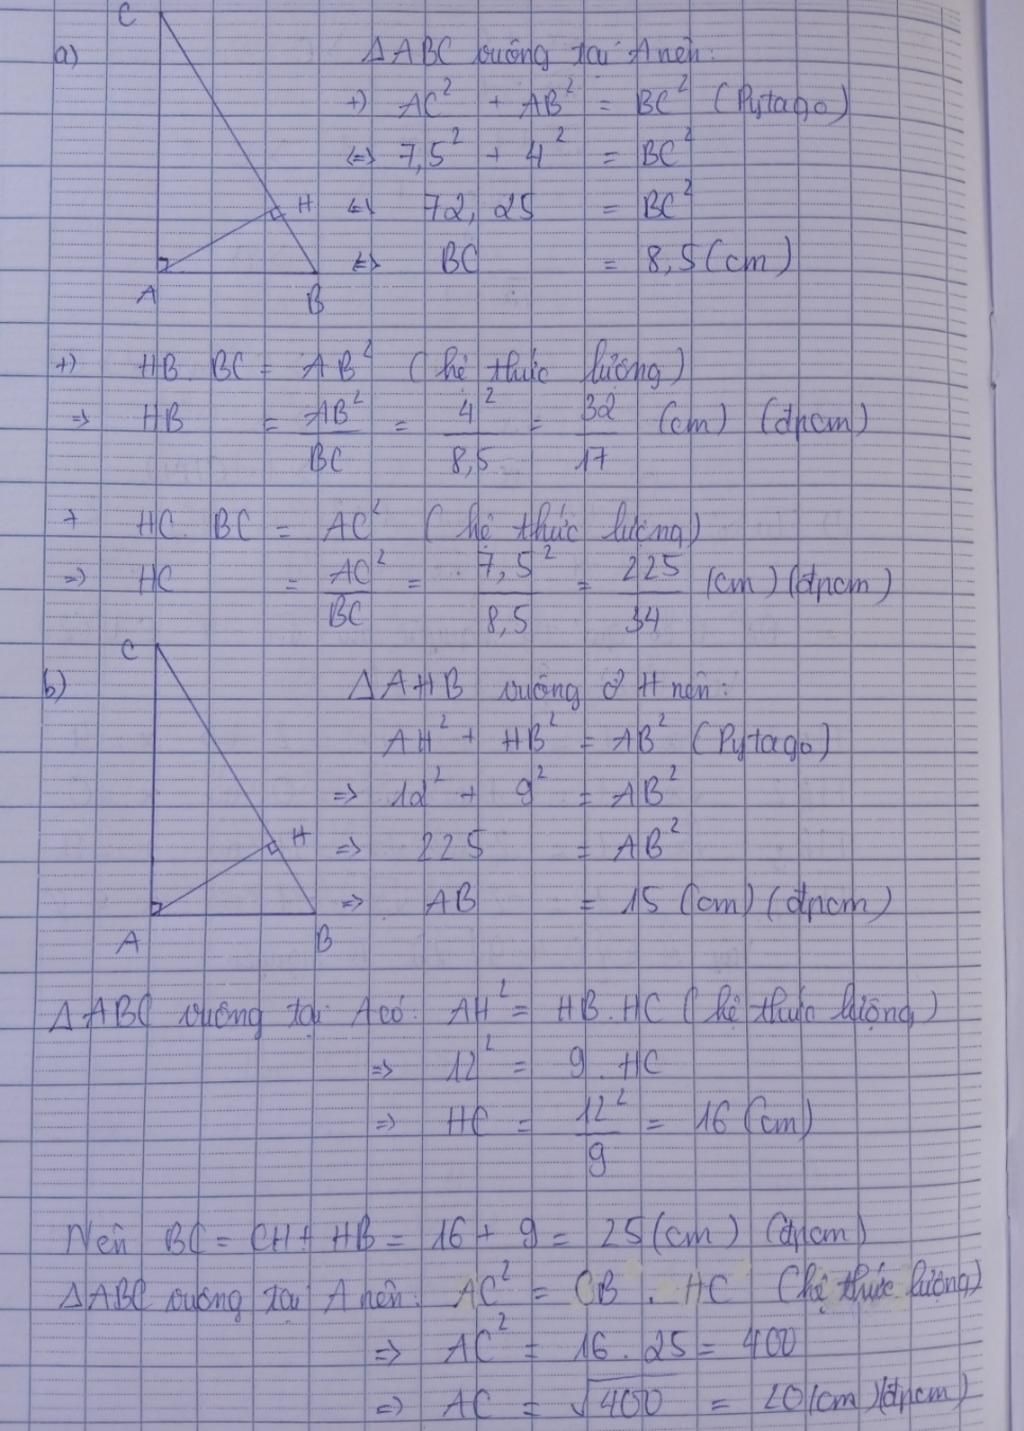 C
a) ΔABC vuông tại A nên:
+) AC² + AB² = BC² (Pytago)
<=> 7,5² + 4² = BC²
H <=> 72,25 = BC²
<=> BC = 8,5 (cm)
A B
+) HB. BC = AB² (hệ thức lượng)
=> HB = AB²/BC = 4²/8,5 = 32/17 (cm) (đpcm)
+ HC. BC = AC² (hệ thức lượng)
=> HC = AC²/BC = 7,5²/8,5 = 225/34 (cm) (đpcm)
C
b) ΔAHB vuông ở H nên:
AH² + HB² = AB² (Pytago)
=> 12² + 9² = AB²
H => 225 = AB²
=> AB = 15 (cm) (đpcm)
A B
ΔABC vuông tại A có: AH² = HB. HC (hệ thức lượng)
=> 12² = 9. HC
=> HC = 12²/9 = 16 (cm)
Nên BC = CH + HB = 16 + 9 = 25 (cm) (đpcm)
ΔABC vuông tại A nên: AC² = CB. HC (hệ thức lượng)
=> AC² = 16. 25 = 400
=> AC = √400 = 20 (cm) (đpcm)